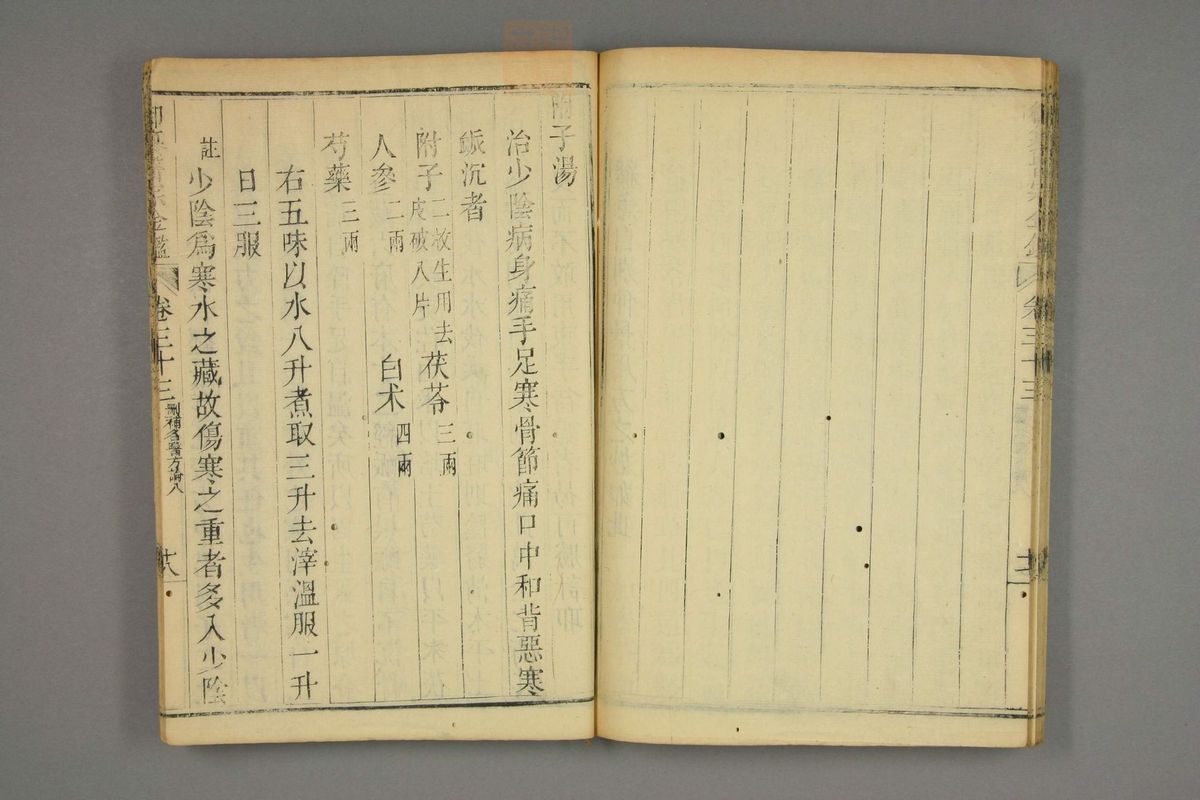 卷三十三
附子湯
治少陰病身痛手足寒骨節痛口中和背惡寒
脈沉者
附子二枚生用去皮破八片 茯苓三兩
人參二兩 白朮四兩
芍藥三兩
右五味以水八升煮取三升去滓溫服一升
日三服
註少陰爲寒水之藏故傷寒之重者多入少陰
御纂醫宗金鑑 卷三十三 刪補名醫方論八 十八